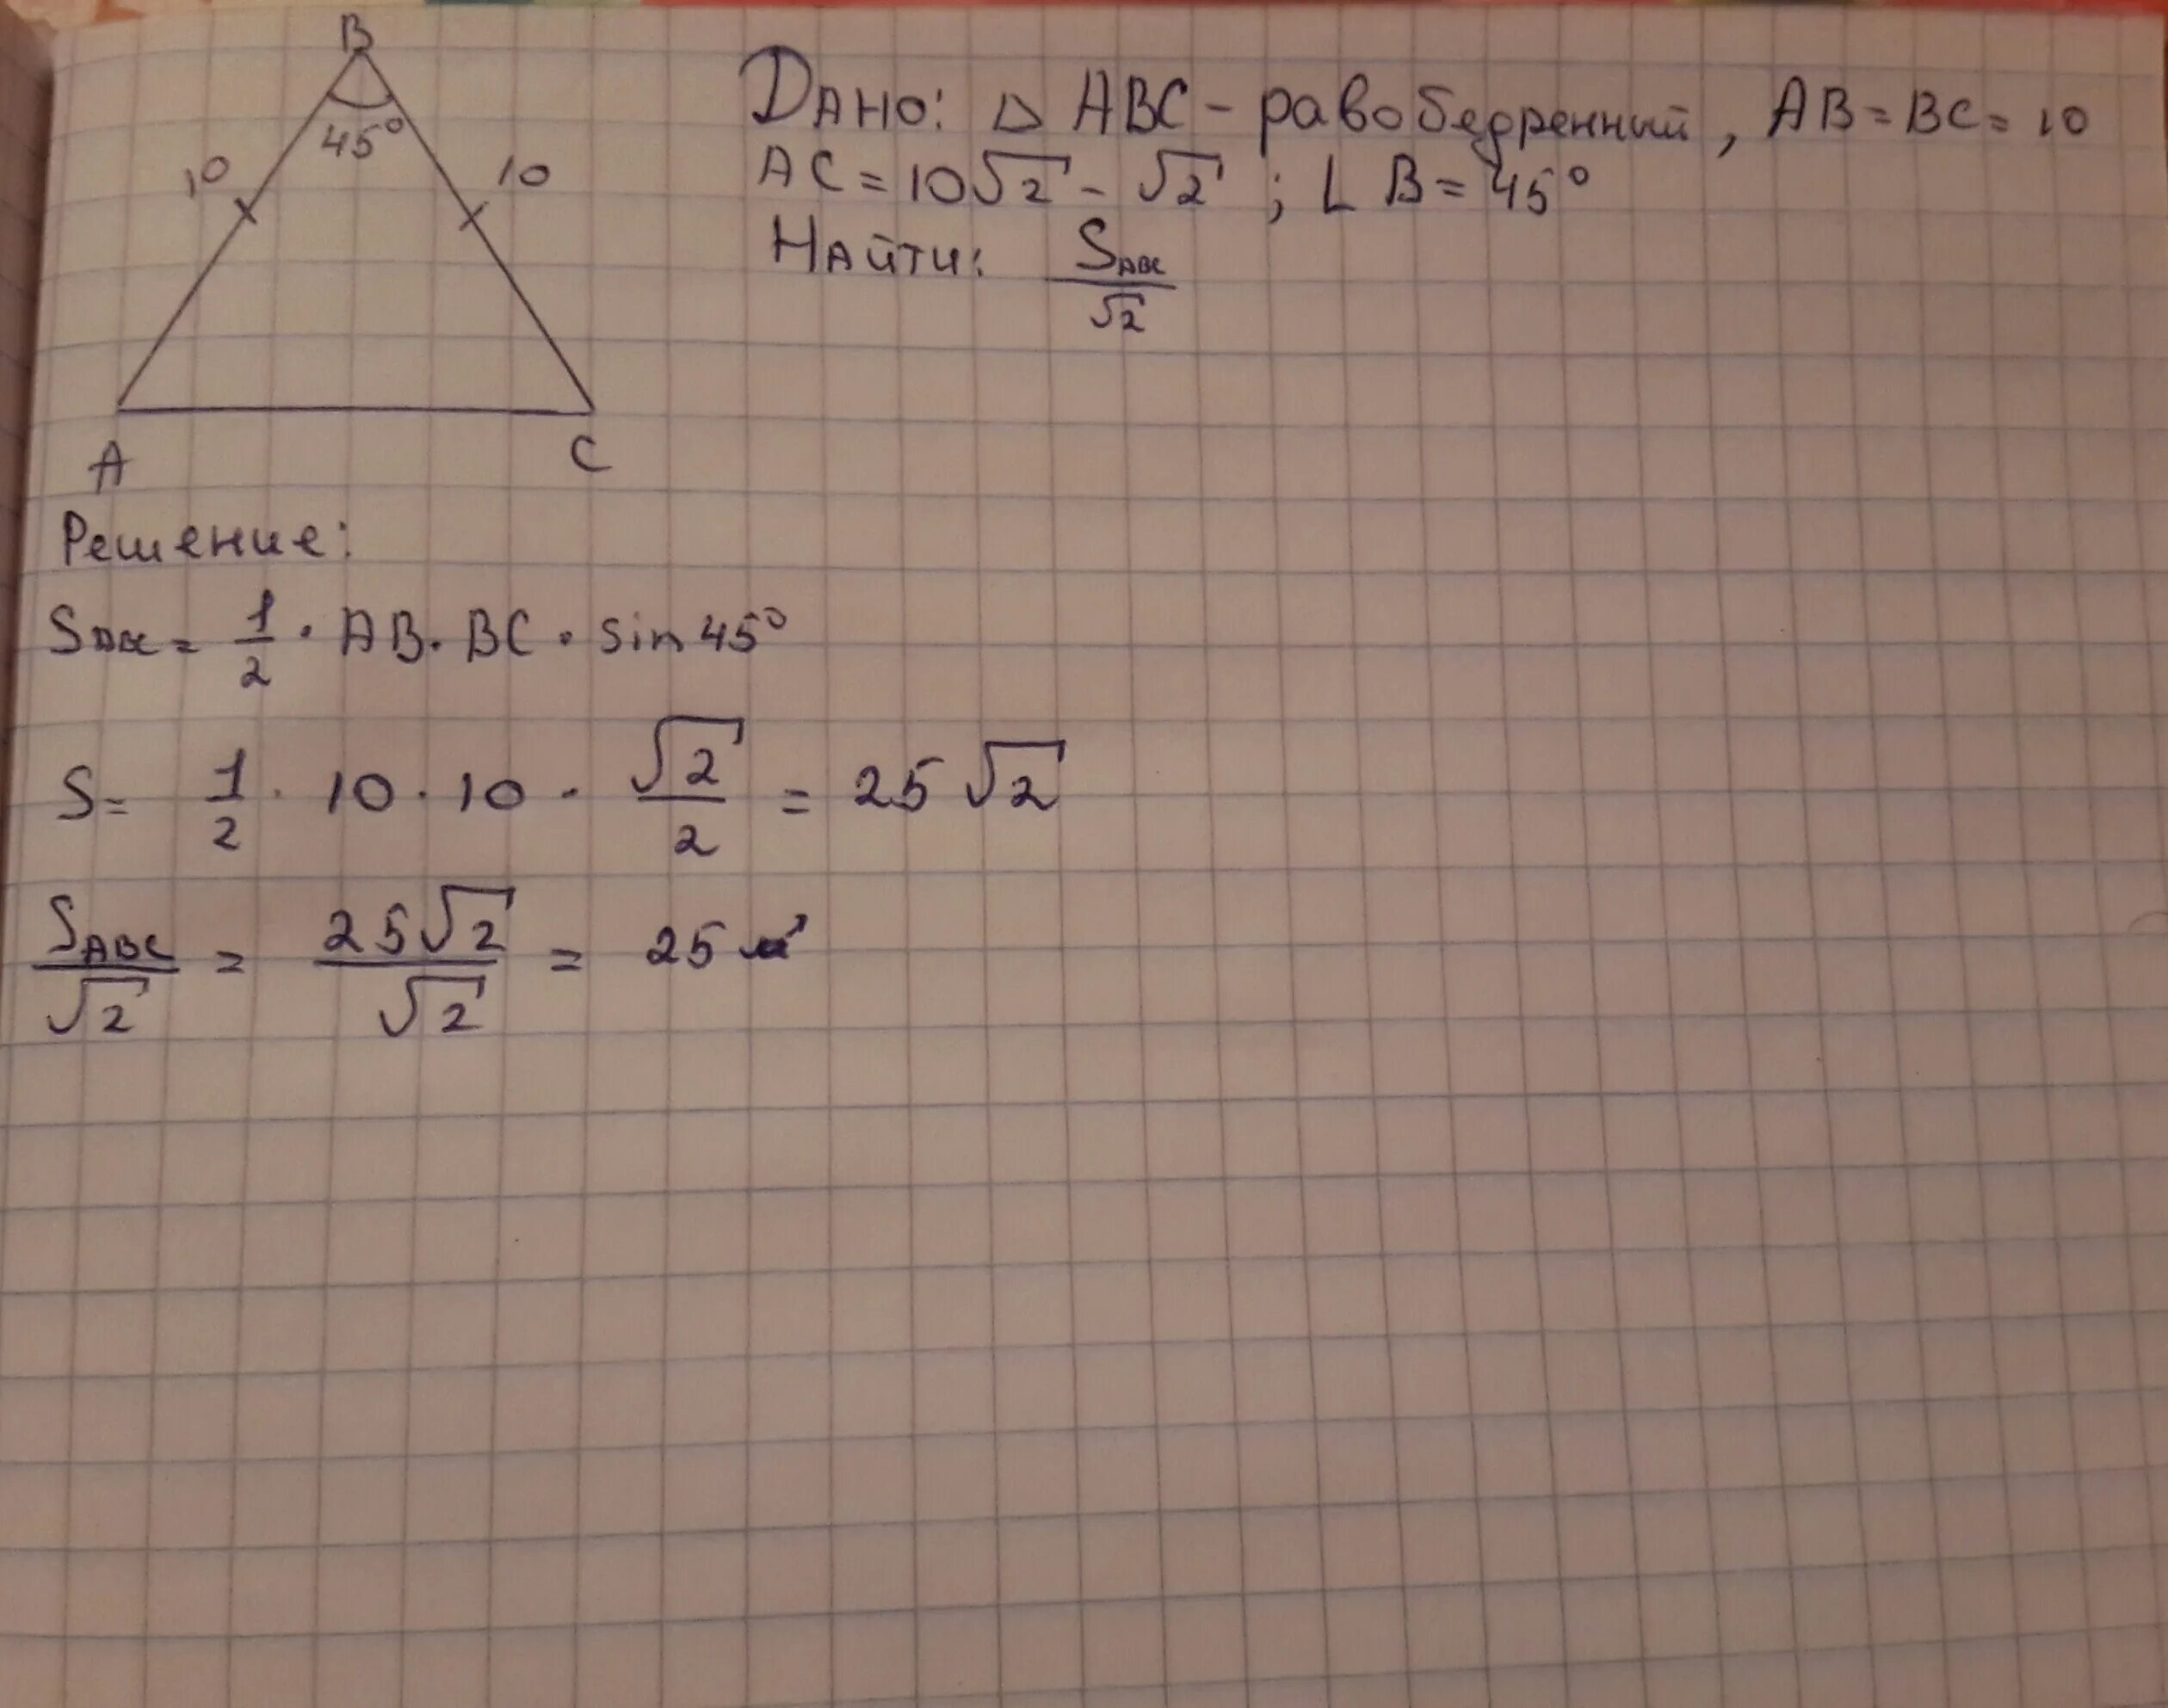 B
45°
10
10
A
C
Дано: △ ABC - равобедренный, AB = BC = 10
AC = 10√2 - √2 ; ∠ B = 45°
Найти: S_ABC / √2
Решение:
S_ABC = 1/2 · AB · BC · sin 45°
S = 1/2 · 10 · 10 · √2/2 = 25 √2
S_ABC / √2 = 25√2 / √2 = 25